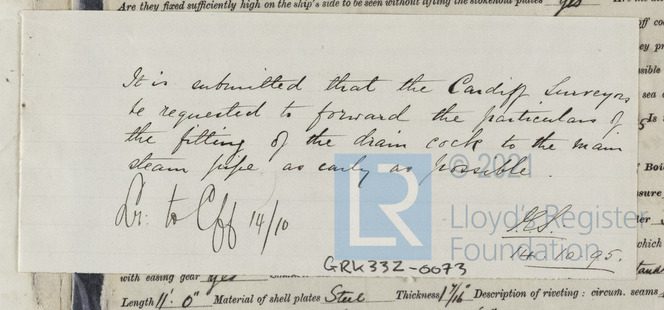 Are they fixed sufficiently high on the ship's side to be seen without lifting the stokehold plates yes
It is submitted that the Cardiff Surveyors
be requested to forward the particulars of
the fitting of the drain cock to the main
steam pipe as early as possible.
Lr: to Cff 14/10
14.10.95.
© 2021
Lloyd's Register
Foundation
LR
GRK332-0073
with easing gear yes
Length 11' 0" Material of shell plates Steel Thickness 1 1/16" Description of riveting: circum. seams